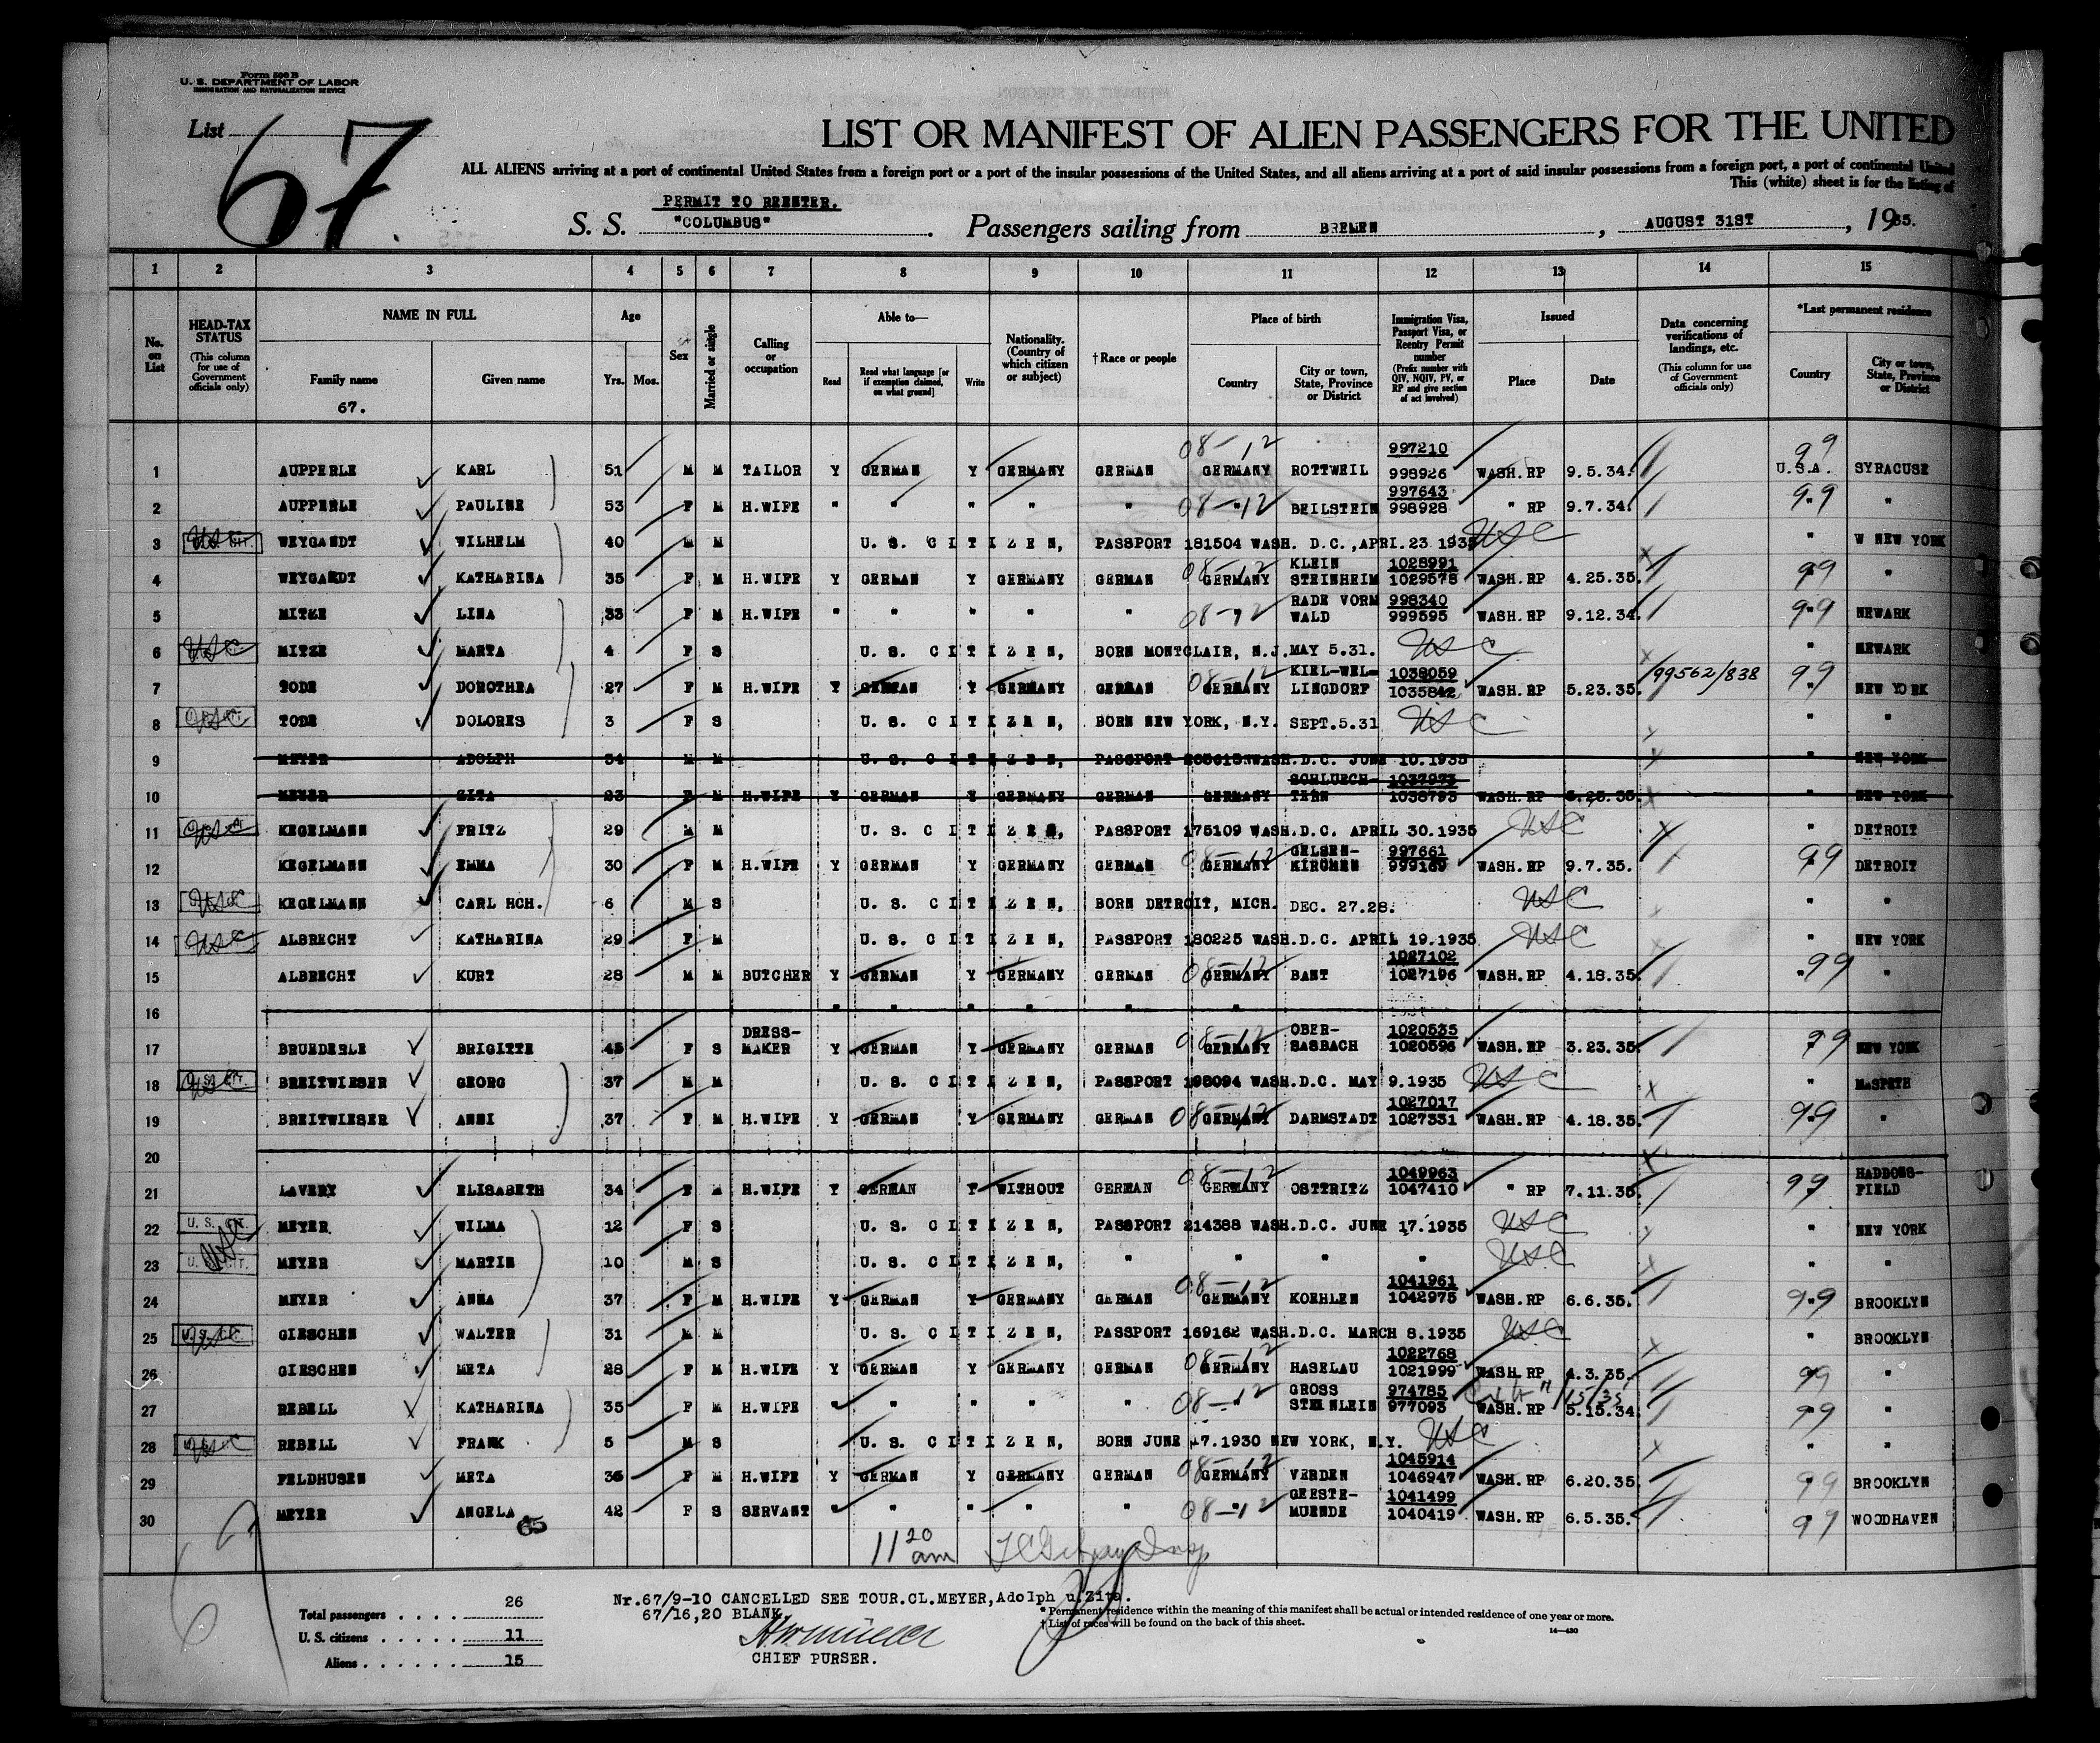 Form 500 B
U. S. DEPARTMENT OF LABOR
IMMIGRATION AND NATURALIZATION SERVICE
List 67.
LIST OR MANIFEST OF ALIEN PASSENGERS FOR THE UNITED
ALL ALIENS arriving at a port of continental United States from a foreign port or a port of the insular possessions of the United States, and all aliens arriving at a port of said insular possessions from a foreign port, a port of continental United
This (white) sheet is for the listing of
PERMIT TO REENTER.
S. S. "COLUMBUS". Passengers sailing from BREMEN, AUGUST 31ST, 1935.
1 2 3 4 5 6 7 8 9 10 11 12 13 14 15
No. on List
HEAD-TAX STATUS (This column for use of Government officials only)
NAME IN FULL
Family name
67.
Given name
Age
Yrs. Mos.
Sex
Married or single
Calling or occupation
Able to—
Read
Read what language [or if exemption claimed, on what ground]
Write
Nationality. (Country of which citizen or subject)
†Race or people
Place of birth
Country
City or town, State, Province or District
Immigration Visa, Passport Visa, or Reentry Permit number (Prefix number with QIV, NQIV, PV, or RP and give section of act involved)
Issued
Place
Date
Data concerning verifications of landings, etc. (This column for use of Government officials only)
*Last permanent residence
Country
City or town, State, Province or District
08-12 997210 99
1 AUPPERLE KARL 51 M M TAILOR Y GERMAN Y GERMANY GERMAN GERMANY ROTTWEIL 998926 WASH. RP 9.5.34. U.S.A. SYRACUSE
997643
2 AUPPERLE PAULINE 53 F M H.WIFE " " " " " 08-12 " BEILSTEIN 998928 " RP 9.7.34. 99 "
3 WEYGANDT WILHELM 40 M M U. S. CITIZEN, PASSPORT 181504 WASH. D.C., APRI.23 1935 USC " W NEW YORK
KLEIN 1028991
4 WEYGANDT KATHARINA 35 F M H.WIFE Y GERMAN Y GERMANY GERMAN 08-12 GERMANY STEINHEIM 1029578 WASH. RP 4.25.35. 99 "
RADE VORM 998340
5 MITZE LINA 33 F M H.WIFE " " " " " 08-12 WALD 999595 WASH. RP 9.12.34. 99 NEWARK
6 USC MITZE MARTA 4 F S U. S. CITIZEN, BORN MONTCLAIR, N.J. MAY 5.31. USC " NEWARK
KIEL-WEL- 1038059
7 TODE DOROTHEA 27 F M H.WIFE Y GERMAN Y GERMANY GERMAN 08-12 GERMANY LINGDORF 1035842 WASH. RP 5.23.35. 99562/838 99 NEW YORK
8 USC TODE DOLORES 3 F S U. S. CITIZEN, BORN NEW YORK, N.Y. SEPT.5.31 USC " "
9 MEYER ADOLPH 34 M M U. S. CITIZEN, PASSPORT WASH.D.C. JUNE 10.1935 " NEW YORK
SCHLUECH- 1037973
10 MEYER ZITA 23 F M H.WIFE Y GERMAN Y GERMANY GERMAN GERMANY TERN 1038793 WASH. RP 5.25.35. " NEW YORK
11 KEGELMANN FRITZ 29 M M U. S. CITIZEN, PASSPORT 175109 WASH.D.C. APRIL 30.1935 USC " DETROIT
GELSEN- 997661
12 KEGELMANN EMMA 30 F M H.WIFE Y GERMAN Y GERMANY GERMAN 08-12 GERMANY KIRCHEN 999169 WASH. RP 9.7.35. 99 DETROIT
13 USC KEGELMANN CARL HCH. 6 M S U. S. CITIZEN, BORN DETROIT, MICH. DEC. 27.28. USC " "
14 USC ALBRECHT KATHARINA 29 F M U. S. CITIZEN, PASSPORT 180225 WASH.D.C. APRIL 19.1935 USC " NEW YORK
1027102
15 ALBRECHT KURT 28 M M BUTCHER Y GERMAN Y GERMANY GERMAN 08-12 GERMANY BANT 1027196 WASH. RP 4.18.35. 99 "
16 " " " " "
DRESS- OBER- 1020535
17 BRUEDERLE BRIGITTE 45 F S MAKER Y GERMAN Y GERMANY GERMAN 08-12 GERMANY SASBACH 1020596 WASH. RP 3.23.35. 99 NEW YORK
18 BREITWIESER GEORG 37 M M U. S. CITIZEN, PASSPORT 198094 WASH.D.C. MAY 9.1935 USC " MASPETH
1027017
19 BREITWIESER ANNI 37 F M H.WIFE Y GERMAN Y GERMANY GERMAN 08-12 GERMANY DARMSTADT 1027331 WASH. RP 4.18.35. 99 "
20
1049963 HADDONS-
21 LAVERY ELISABETH 34 F M H.WIFE Y GERMAN Y WITHOUT GERMAN 08-12 GERMANY OSTTRITZ 1047410 " RP 7.11.35. 99 FIELD
22 U. S. CIT. MEYER WILMA 12 F S U. S. CITIZEN, PASSPORT 214388 WASH.D.C. JUNE 17.1935 USC " NEW YORK
23 U. S. CIT. USC MEYER MARTIN 10 M S U. S. CITIZEN, " " " " USC " "
1041961
24 MEYER ANNA 37 F M H.WIFE Y GERMAN Y GERMANY GERMAN 08-12 GERMANY KOEHLEN 1042975 WASH. RP 6.6.35. 99 BROOKLYN
25 GIESCHEN WALTER 31 M M U. S. CITIZEN, PASSPORT 169162 WASH.D.C. MARCH 8.1935 USC " BROOKLYN
1022768
26 GIESCHEN META 28 F M H.WIFE Y GERMAN Y GERMANY GERMAN 08-12 GERMANY HASELAU 1021999 WASH. RP 4.3.35. 99 "
GROSS 974785 15/35
27 REBELL KATHARINA 35 F M H.WIFE " " " " " 08-12 " STEINLEIN 977093 WASH. RP 5.15.34. 99 "
28 USC REBELL FRANK 5 M S U. S. CITIZEN, BORN JUNE 17.1930 NEW YORK, N.Y. USC " "
1045914
29 FELDHUSEN META 36 F M H.WIFE Y GERMAN Y GERMANY GERMAN 08-12 GERMANY VERDEN 1046947 WASH. RP 6.20.35 99 BROOKLYN
GEESTE- 1041499
30 MEYER ANGELA 65 42 F S SERVANT " " " " " 08-12 " MUENDE 1040419 WASH. RP 6.5.35. 99 WOODHAVEN
11 20 am
Total passengers . . . . 26
U. S. citizens . . . . . 11
Aliens . . . . . . 15
Nr.67/9-10 CANCELLED SEE TOUR.CL.MEYER,Adolph u.Zita.
67/16,20 BLANK.
CHIEF PURSER.
* Permanent residence within the meaning of this manifest shall be actual or intended residence of one year or more.
† List of races will be found on the back of this sheet.
14—430